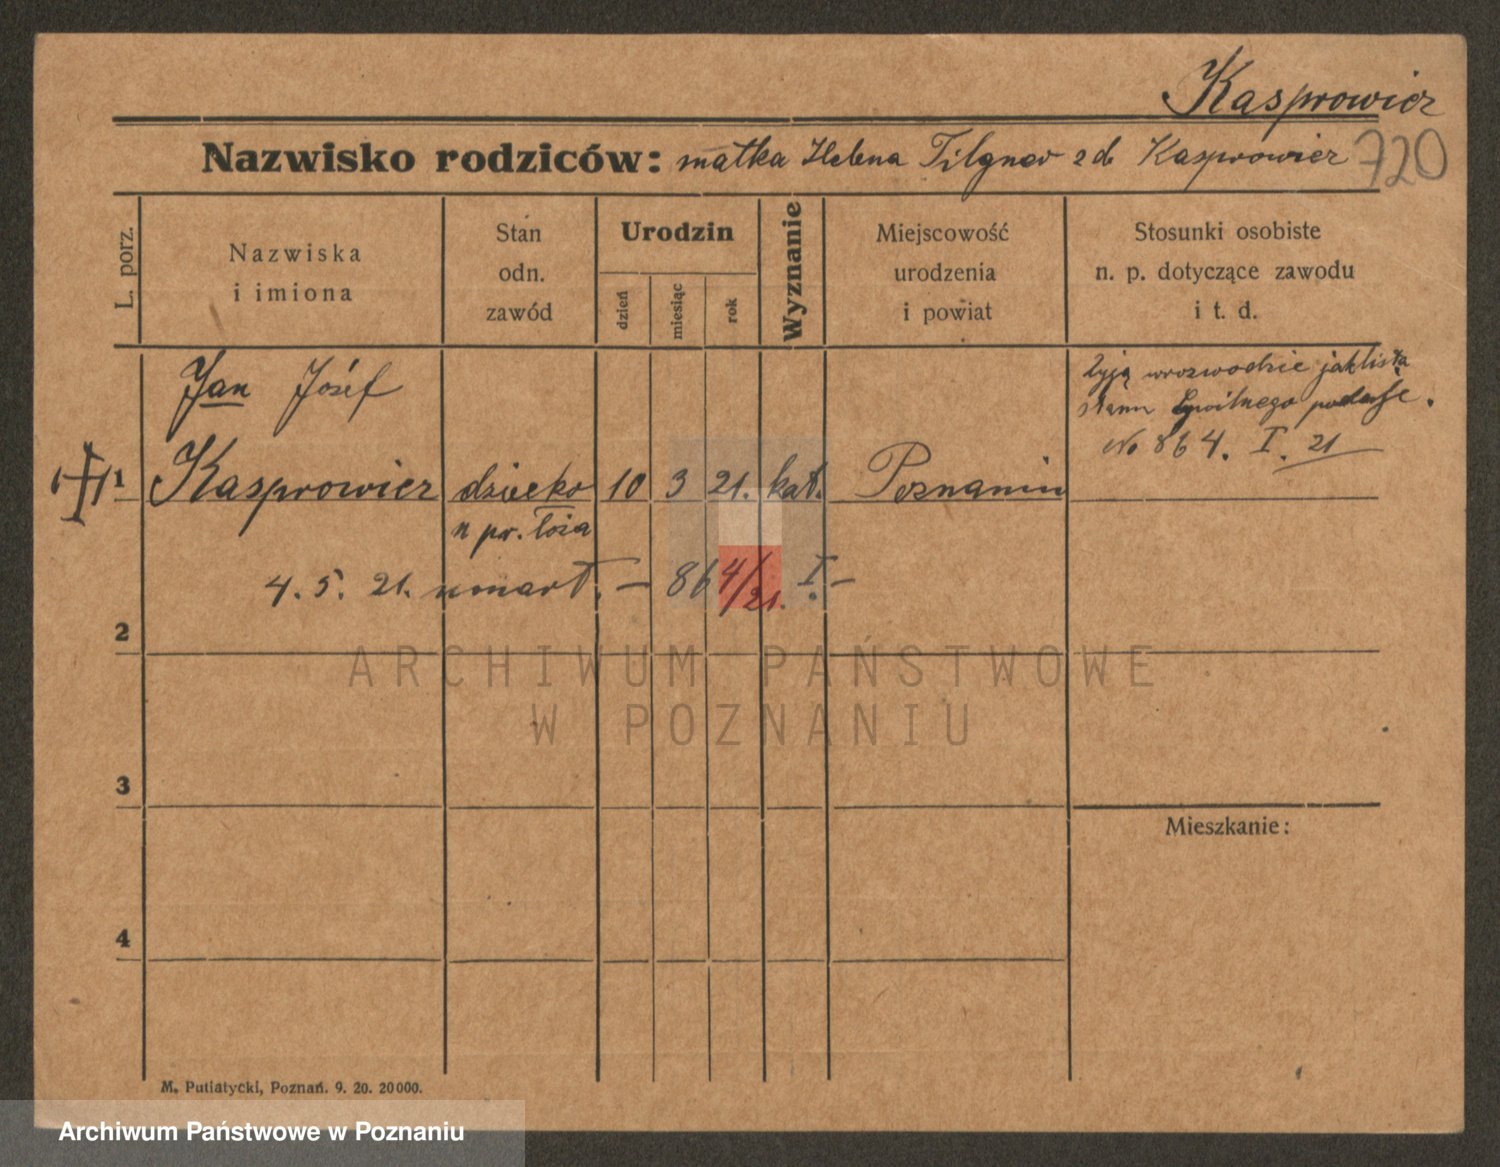 Kasprowicz
Nazwisko rodziców: matka Helena Tilgner zd Kasprowicz 720
L. porz.
Nazwiska
i imiona
Stan
odn.
zawód
Urodzin
dzień
miesiąc
rok
Wyznanie
Miejscowość
urodzenia
i powiat
Stosunki osobiste
n. p. dotyczące zawodu
i t. d.
Jan Józef
1 Kasprowicz dziecko 10 3 21. kat. Poznaniu
żyją w rozwodzie jak lista
stanu cywilnego podaje.
No 864. I. 21
n pr. łoża
4. 5. 21. umarł. – 864/21. I. –
2
3
4
Mieszkanie:
M. Putiatycki, Poznań. 9. 20. 20000.
ARCHIWUM PAŃSTWOWE
W POZNANIU
Archiwum Państwowe w Poznaniu